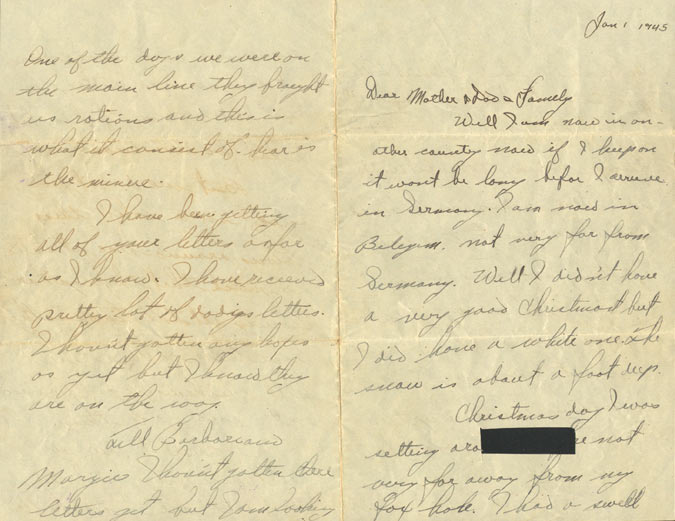 Jan 1 1945
Dear Mother & Dad & Family
Well I am now in an-
other county now if I keep on
it won't be long befor I arrive
in Germany. I am now in
Belegem. not very far from
Germany. Well I didn't have
a very good Christmast but
I did have a white one. The
snow is about a foot deep.
Christmas day I was
setting aro not
very far away from my
fox hole. I had a swell
One of the days we were on
the main line they brought
us rations and this is
what it consist of. hear is
the minue.
I have been getting
all of your letters as far
as I know. I have recieved
pretty lot of dadys letters.
I havn't gotten any boxes
as yet but I know they
are on the way.
Tell Barbara and
Margie I havn't gotten there
letters yet but I am looking